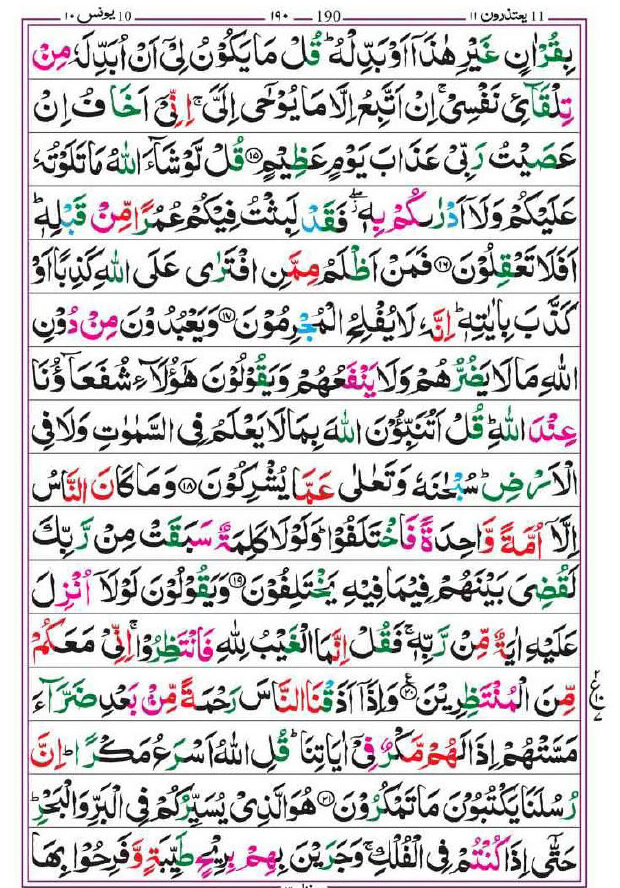 11 یعتذرون ۱۱ 190 ۱۹۰ 10 یونس ۱۰
بِقُرْاٰنٍ غَیْرِ هٰذَاۤ اَوْ بَدِّلْهُ ؕ قُلْ مَا یَكُوْنُ لِیْۤ اَنْ اُبَدِّلَهٗ مِنْ
تِلْقَآئِ نَفْسِیْ ۚ اِنْ اَتَّبِعُ اِلَّا مَا یُوْحٰۤی اِلَیَّ ۚ اِنِّیْۤ اَخَافُ اِنْ
عَصَیْتُ رَبِّیْ عَذَابَ یَوْمٍ عَظِیْمٍ ۝۱۵ قُلْ لَّوْ شَآءَ اللّٰهُ مَا تَلَوْتُهٗ
عَلَیْكُمْ وَلَاۤ اَدْرٰىكُمْ بِهٖ ۖؗ فَقَدْ لَبِثْتُ فِیْكُمْ عُمُرًا مِّنْ قَبْلِهٖ ؕ
اَفَلَا تَعْقِلُوْنَ ۝۱۶ فَمَنْ اَظْلَمُ مِمَّنِ افْتَرٰی عَلَی اللّٰهِ كَذِبًا اَوْ
كَذَّبَ بِاٰیٰتِهٖ ؕ اِنَّهٗ لَا یُفْلِحُ الْمُجْرِمُوْنَ ۝۱۷ وَیَعْبُدُوْنَ مِنْ دُوْنِ
اللّٰهِ مَا لَا یَضُرُّهُمْ وَلَا یَنْفَعُهُمْ وَیَقُوْلُوْنَ هٰۤؤُلَآءِ شُفَعَآؤُنَا
عِنْدَ اللّٰهِ ؕ قُلْ اَتُنَبِّـُٔوْنَ اللّٰهَ بِمَا لَا یَعْلَمُ فِی السَّمٰوٰتِ وَلَا فِی
الْاَرْضِ ؕ سُبْحٰنَهٗ وَتَعٰلٰی عَمَّا یُشْرِكُوْنَ ۝۱۸ وَمَا كَانَ النَّاسُ
اِلَّاۤ اُمَّةً وَّاحِدَةً فَاخْتَلَفُوْا ؕ وَلَوْلَا كَلِمَةٌ سَبَقَتْ مِنْ رَّبِّكَ
لَقُضِیَ بَیْنَهُمْ فِیْمَا فِیْهِ یَخْتَلِفُوْنَ ۝۱۹ وَیَقُوْلُوْنَ لَوْلَاۤ اُنْزِلَ
عَلَیْهِ اٰیَةٌ مِّنْ رَّبِّهٖ ۚ فَقُلْ اِنَّمَا الْغَیْبُ لِلّٰهِ فَانْتَظِرُوْا ۚ اِنِّیْ مَعَكُمْ
مِّنَ الْمُنْتَظِرِیْنَ ۝۲۰ وَاِذَاۤ اَذَقْنَا النَّاسَ رَحْمَةً مِّنْۢ بَعْدِ ضَرَّآءَ
مَسَّتْهُمْ اِذَا لَهُمْ مَّكْرٌ فِیْۤ اٰیَاتِنَا ؕ قُلِ اللّٰهُ اَسْرَعُ مَكْرًا ؕ اِنَّ
رُسُلَنَا یَكْتُبُوْنَ مَا تَمْكُرُوْنَ ۝۲۱ هُوَ الَّذِیْ یُسَیِّرُكُمْ فِی الْبَرِّ وَالْبَحْرِ ؕ
حَتّٰۤی اِذَا كُنْتُمْ فِی الْفُلْكِ ۚ وَجَرَیْنَ بِهِمْ بِرِیْحٍ طَیِّبَةٍ وَّفَرِحُوْا بِهَا